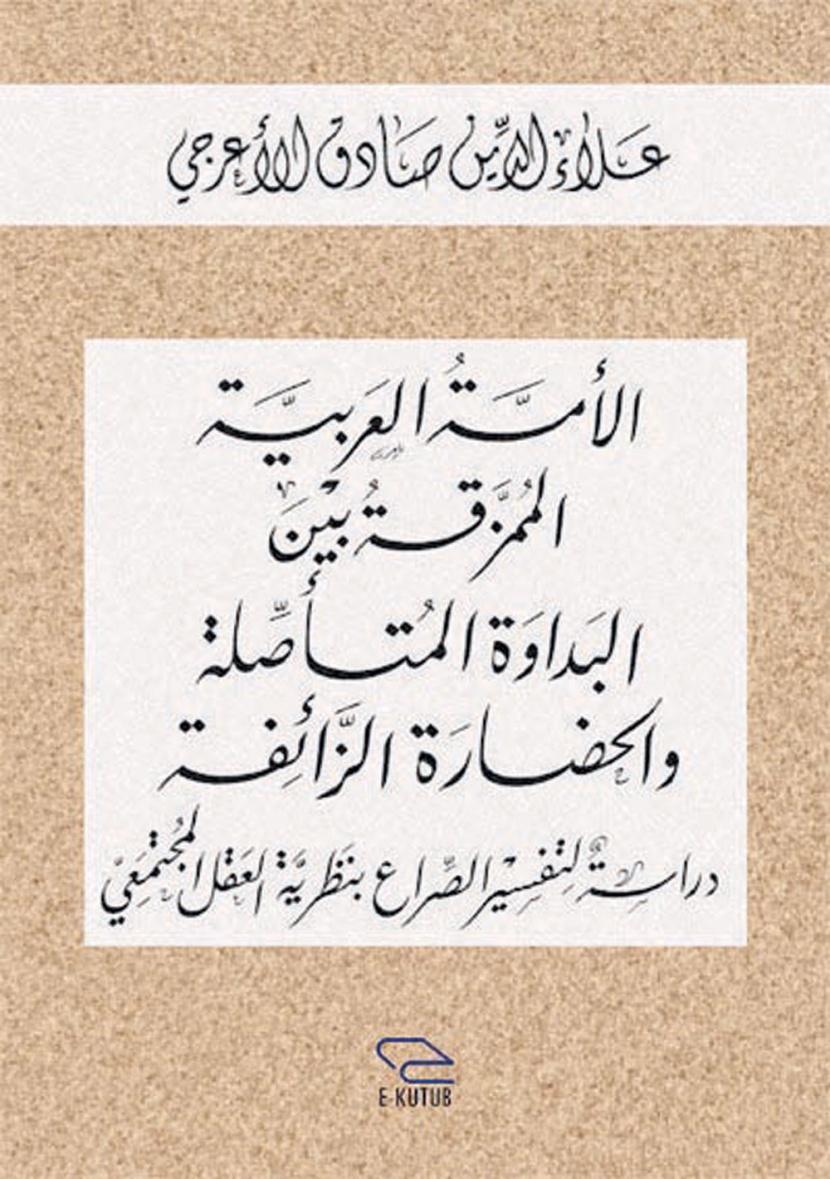 علاء الدين صادق الأعرجي
الأمَّةُ العَربيَّة
المُمزَّقةُ بَيْنَ
البَداوَة المُتأصِّلة
والحضارَة الزَّائِفة
دراسةٌ لتفسِير الصِّراع بنَظريَّة العَقل المُجتمَعيّ
E-KUTUB